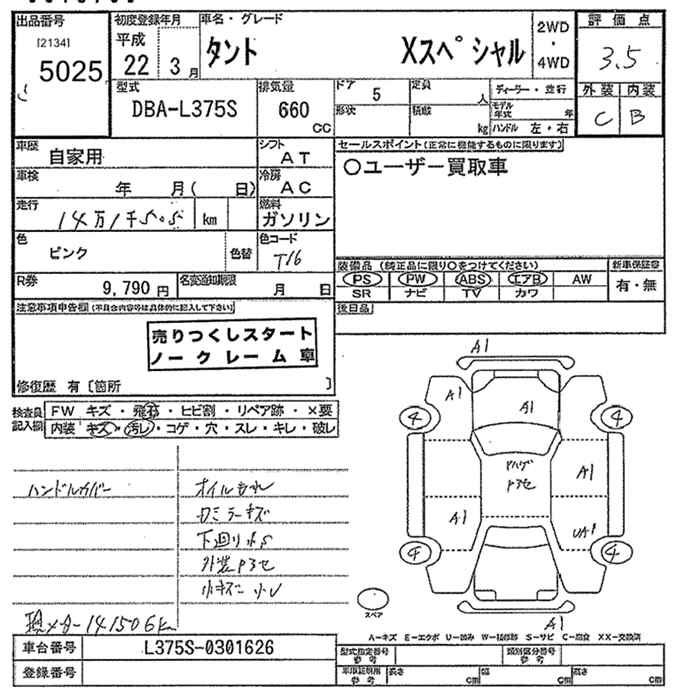 出品番号
[2134]
5025
初度登録年月
平成
22 3月
車名・グレード
タント Xスペシャル
2WD
・
4WD
評価点
3.5
外装 内装
C B
型式
DBA-L375S
排気量
660
cc
ドア 5
形状
定員 人
積載 kg
ディーラー・並行
モデル年式 年
ハンドル 左・右
車歴
自家用
シフト
AT
車検
年 月( 日)
冷房
AC
走行
km
燃料
ガソリン
色
ピンク
色替
色コード
T16
R券
9,790円
名変通知期限
月 日
セールスポイント(正常に機能するものに限ります)
○ユーザー買取車
装備品(純正品に限り○をつけてください)
PS PW ABS エアB AW
SR ナビ TV カワ
新車保証書
有・無
後日品
注意事項申告欄(不具合内容等は具体的に記入して下さい)
売りつくしスタート
ノークレーム車
修復歴 有〔箇所 〕
検査員記入欄
FW キズ・飛石・ヒビ割・リペア跡・×要
内装 キズ・汚レ・コゲ・穴・スレ・キレ・破レ
ハンドルカバー
オイルもれ
ロミラーキズ
下廻りサS
外装P3セ
小キズ 小U
現メター141506km
A1
A1
A1
4
4
Pハゲ
P3セ
A1
A1
UA1
4
4
スペア
A1
A-キズ E-エクボ U-凹み W-補修跡 S-サビ C-腐食 XX-交換済
車台番号
L375S-0301626
登録番号
型式指定番号
参考
類別区分番号
参考
車庫証明用
参考
長さ cm
幅 cm
高さ cm